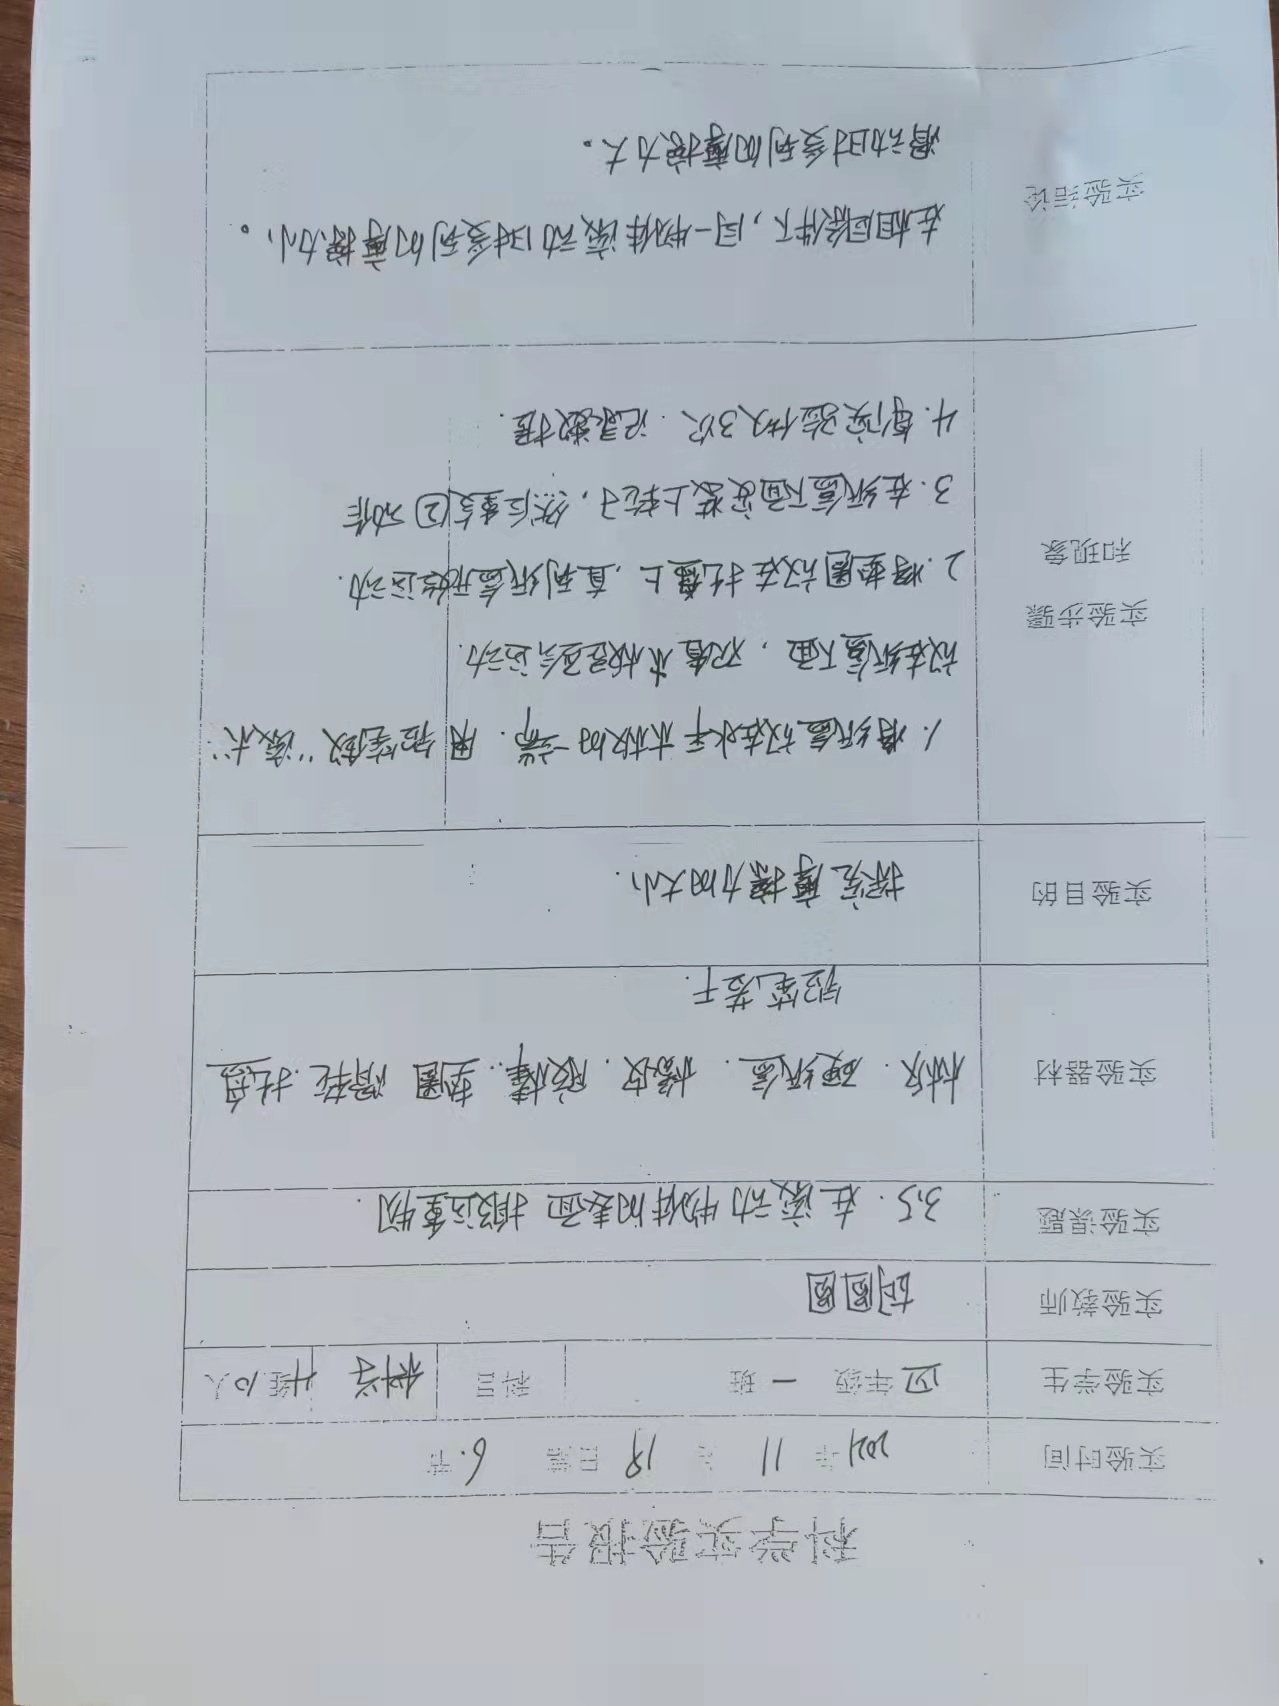 科学实验报告
实验时间 2021年 11月 18日第 6.节
实验学生 四年级 一 班 科目 科学 10人
实验教师 胡圆圆
实验课题 3.5. 在滚动物体的表面搬运重物.
实验器材 木板. 硬纸盒. 橡皮. 胶棒. 垫圈 滑轮. 托盘
铅笔若干.
实验目的 探究摩擦力的大小
实验步骤
和现象
1. 将纸盒放在水平木板的一端. 用铅笔做“滚木”
放在纸盒下面, 观看木板是否运动.
2. 将垫圈放在托盘上, 直到纸盒开始运动.
3. 在纸盒下面安装上轮子, 然后重复②动作
4. 每次实验做3次. 记录数据.
实验结论 在相同条件下, 同一物体滚动时受到的摩擦力小。
滑动时受到的摩擦力大。